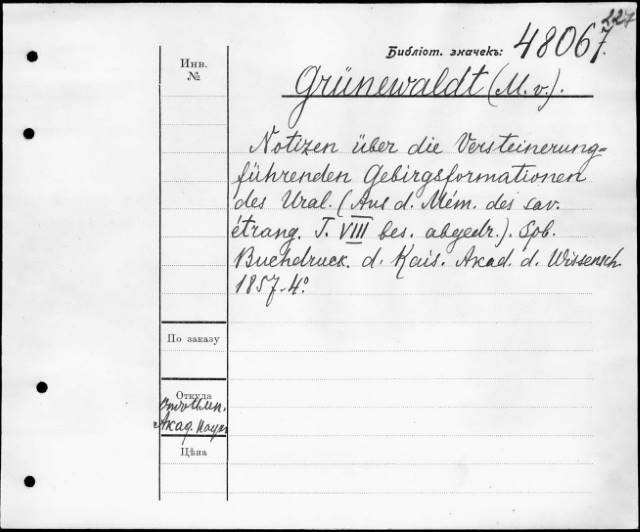 227
Библіот. значекъ: 48067.
Инв.
№
Grünewaldt (M. v.).
Notizen über die Versteinerung=
führenden Gebirgsformationen
des Ural. (Aus d. Mém. des sav.
étrang. T. VIII bes. abgedr.). Spb.
Buchdruck. d. Kais. Akad. d. Wissensch.
1857. 4º
По заказу
Откуда
Акад. Наукъ
Цѣна